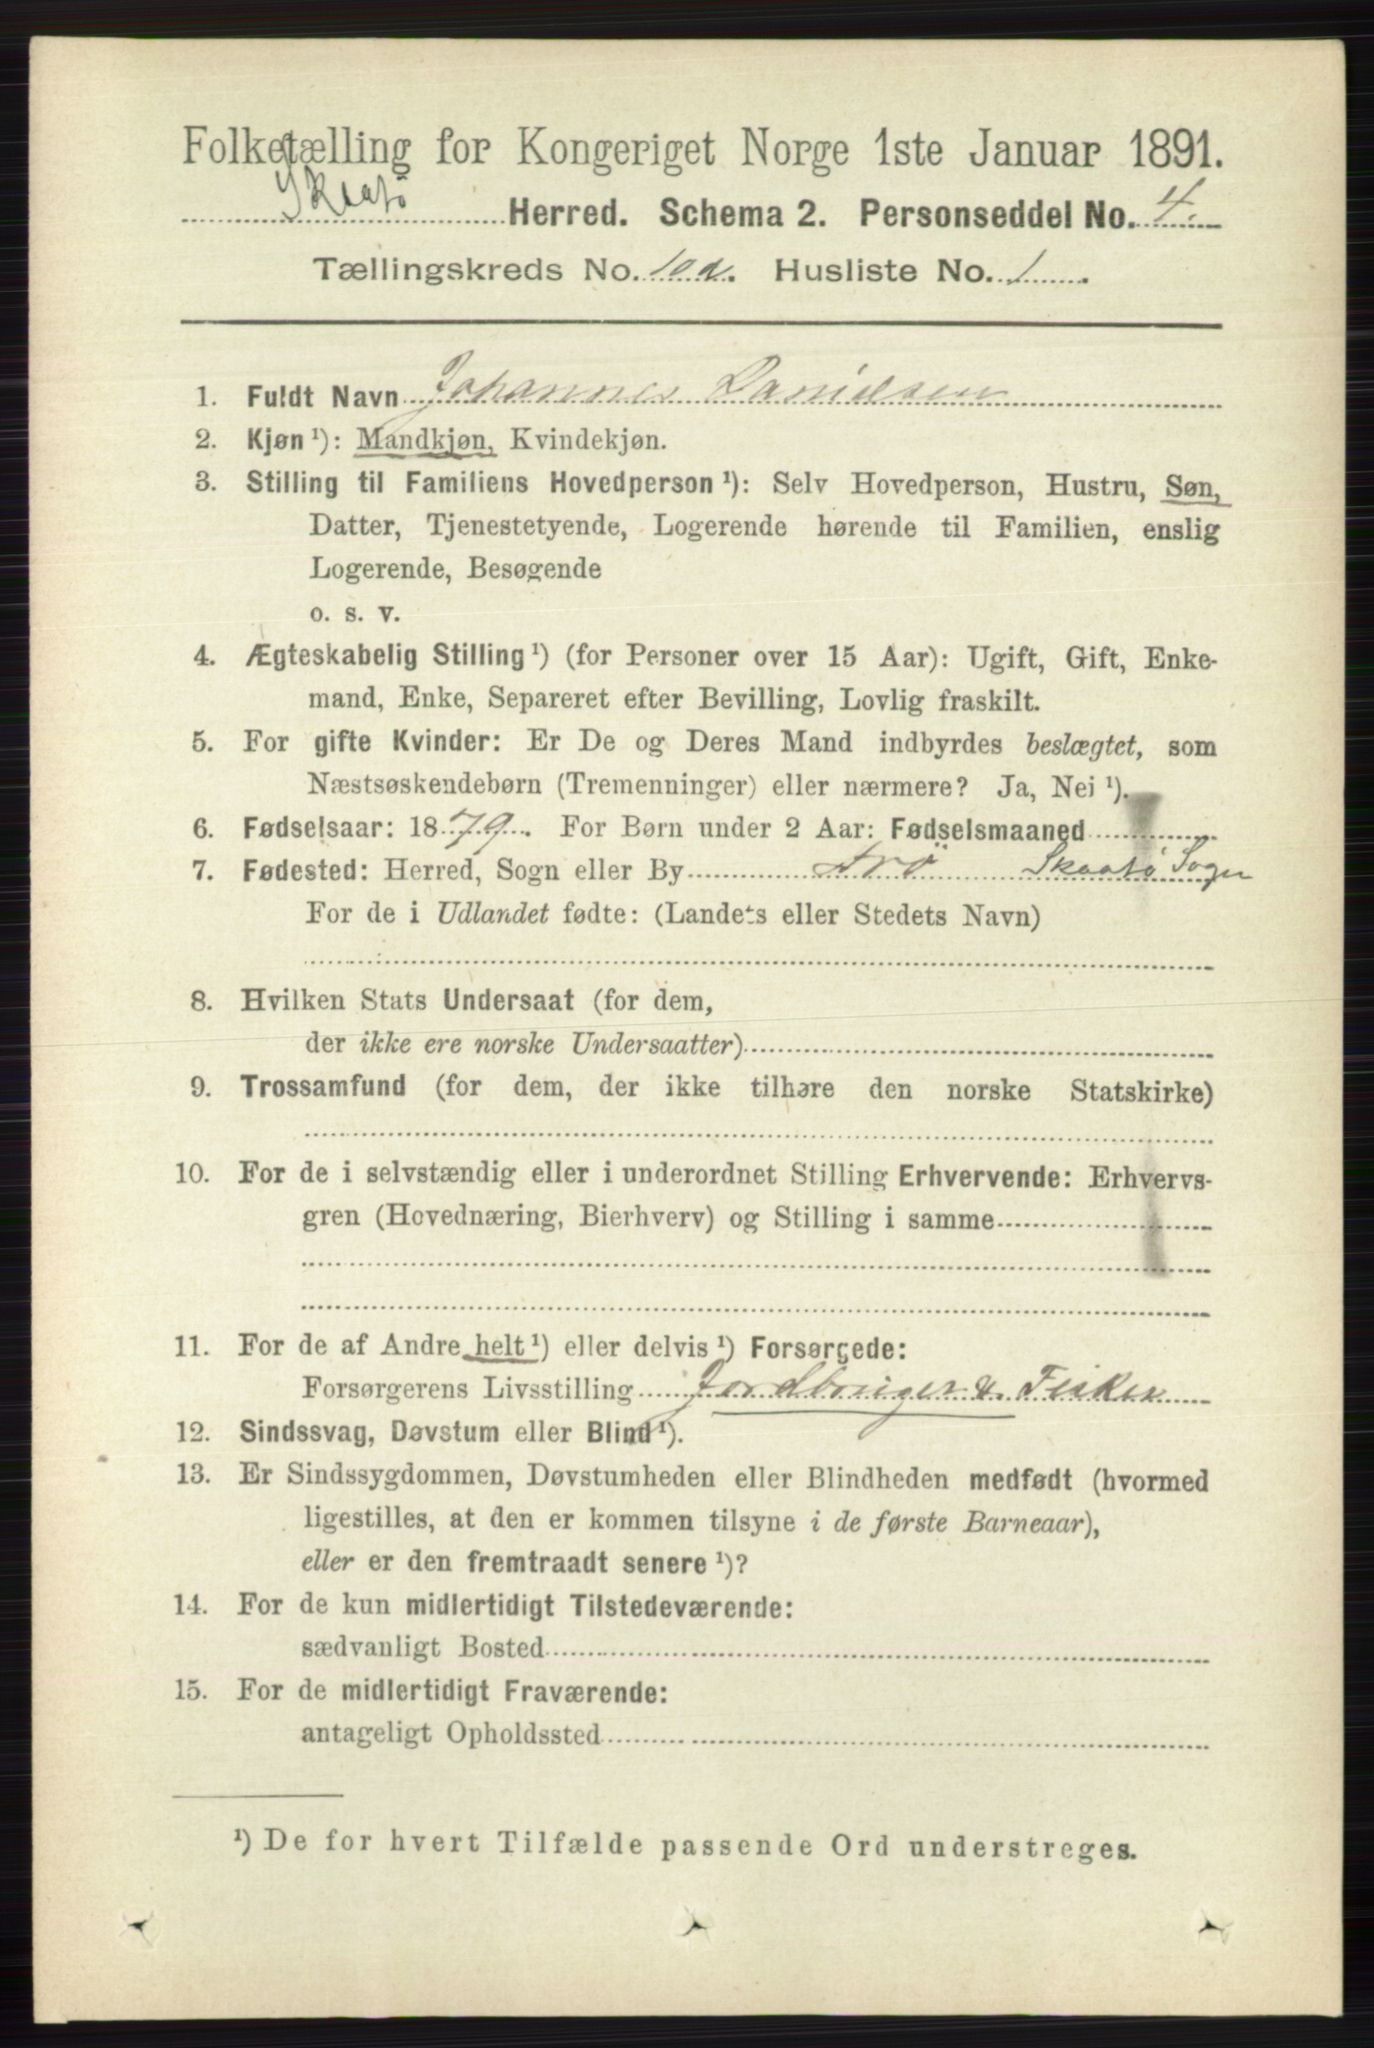 Folketælling for Kongeriget Norge 1ste Januar 1891.
Skaatø Herred. Schema 2. Personseddel No. 4.
Tællingskreds No. 10a. Husliste No. 1
1. Fuldt Navn Johannes Danielsen
2. Kjøn ¹): Mandkjøn, Kvindekjøn.
3. Stilling til Familiens Hovedperson ¹): Selv Hovedperson, Hustru, Søn,
Datter, Tjenestetyende, Logerende hørende til Familien, enslig
Logerende, Besøgende
o. s. v.
4. Ægteskabelig Stilling ¹) (for Personer over 15 Aar): Ugift, Gift, Enke-
mand, Enke, Separeret efter Bevilling, Lovlig fraskilt.
5. For gifte Kvinder: Er De og Deres Mand indbyrdes beslægtet, som
Næstsøskendebørn (Tremenninger) eller nærmere? Ja, Nei ¹).
6. Fødselsaar: 1879. For Børn under 2 Aar: Fødselsmaaned
7. Fødested: Herred, Sogn eller By Arö Skaatø Sogn
For de i Udlandet fødte: (Landets eller Stedets Navn)
8. Hvilken Stats Undersaat (for dem,
der ikke ere norske Undersaatter)
9. Trossamfund (for dem, der ikke tilhøre den norske Statskirke)
10. For de i selvstændig eller i underordnet Stilling Erhvervende: Erhvervs-
gren (Hovednæring, Bierhverv) og Stilling i samme
11. For de af Andre helt ¹) eller delvis ¹) Forsørgede:
Forsørgerens Livsstilling Jordbruger & Fisker
12. Sindssvag, Døvstum eller Blind ¹).
13. Er Sindssygdommen, Døvstumheden eller Blindheden medfødt (hvormed
ligestilles, at den er kommen tilsyne i de første Barneaar),
eller er den fremtraadt senere ¹)?
14. For de kun midlertidigt Tilstedeværende:
sædvanligt Bosted
15. For de midlertidigt Fraværende:
antageligt Opholdssted
¹) De for hvert Tilfælde passende Ord understreges.